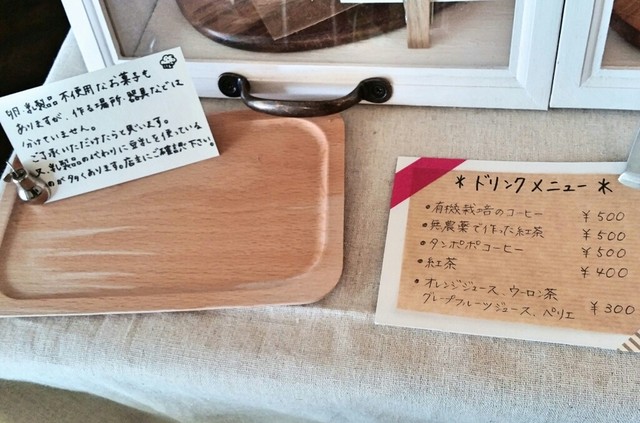 卵・乳製品不使用なお菓子も
ありますが、作る場所・器具などは
分けていません。
ご了承いただけたらと思います。
又、乳製品のかわりに豆乳を使っている
ものが多くあります。店主にご確認下さい。
＊ドリンクメニュー＊
・有機栽培のコーヒー ￥500
・無農薬で作った紅茶 ￥500
・タンポポコーヒー ￥500
・紅茶 ￥400
・オレンジジュース、ウーロン茶
グレープフルーツジュース、ペリエ ￥300